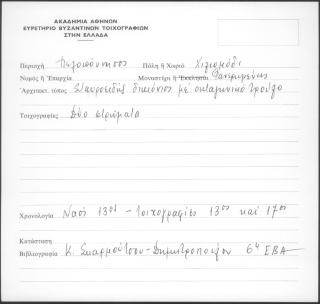 ΑΚΑΔΗΜΙΑ ΑΘΗΝΩΝ
ΕΥΡΕΤΗΡΙΟ ΒΥΖΑΝΤΙΝΩΝ ΤΟΙΧΟΓΡΑΦΙΩΝ
ΣΤΗΝ ΕΛΛΑΔΑ
Περιοχή Πελοπόννησος Πόλη ἤ Χωριό Χιλιομόδι
Νομός ἤ Ἐπαρχία Μοναστήρι ἤ Ἐκκλησία Φανερωμένης
Ἀρχιτεκτ. τύπος Σταυροειδής δικιόνιος μέ οκταγωνικό τρούλο
Τοιχογραφίες Δύο στρώματα
Χρονολογία Ναός 13ος - τοιχογραφίες 13ος και 17ος
Κατάσταση
Βιβλιογραφία Κ. Σκαρμούτσου-Δημητροπούλου 6η ΕΒΑ